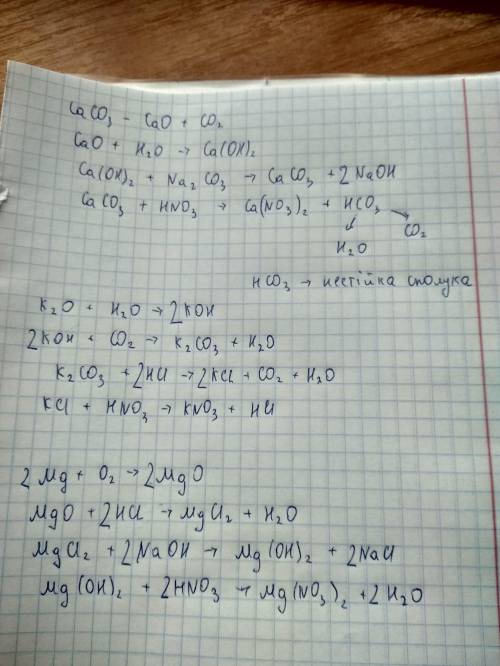 CaCO₃ – CaO + CO₂
CaO + H₂O → Ca(OH)₂
Ca(OH)₂ + Na₂CO₃ → CaCO₃ + 2NaOH
CaCO₃ + HNO₃ → Ca(NO₃)₂ + HCO₃
↓ ↘
H₂O CO₂
HCO₃ → нестійка сполука
K₂O + H₂O → 2KOH
2KOH + CO₂ → K₂CO₃ + H₂O
K₂CO₃ + 2HCl → 2KCl + CO₂ + H₂O
KCl + HNO₃ → KNO₃ + HCl
2Mg + O₂ → 2MgO
MgO + 2HCl → MgCl₂ + H₂O
MgCl₂ + 2NaOH → Mg(OH)₂ + 2NaCl
Mg(OH)₂ + 2HNO₃ → Mg(NO₃)₂ + 2H₂O